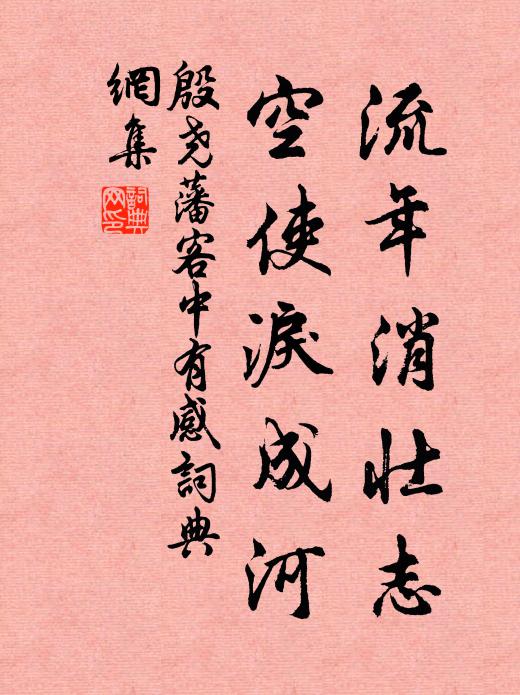 流年消壮志
空使淚成河
殷尧藩客中有感詞典
網集
詞典网印